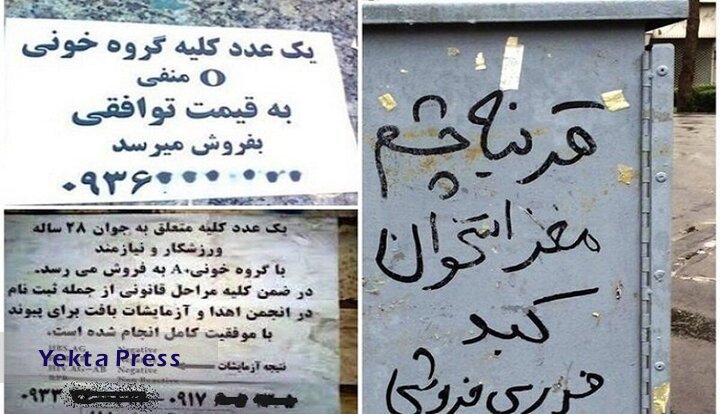 یک عدد کلیه گروه خونی
O منفی
به قیمت توافقی
بفروش میرسد
۰۹۳۶
یک عدد کلیه متعلق به جوان ۲۸ ساله
ورزشکار و نیازمند
با گروه خونی A+ به فروش می رسد.
در ضمن کلیه مراحل قانونی از جمله ثبت نام
در انجمن اهدا و آزمایشات بافت برای پیوند
با موفقیت کامل انجام شده است.
HBS AG Negative
HIV AG-AB Negative
نتیجه آزمایشات
Yekta Press
۰۹۳۳ ۰۹۱۷
قرنیه چشم
مغز استخوان
کبد
فوری فروشی